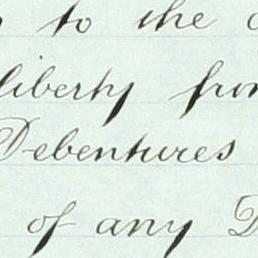 to the
liberty from
Debentures
of any D